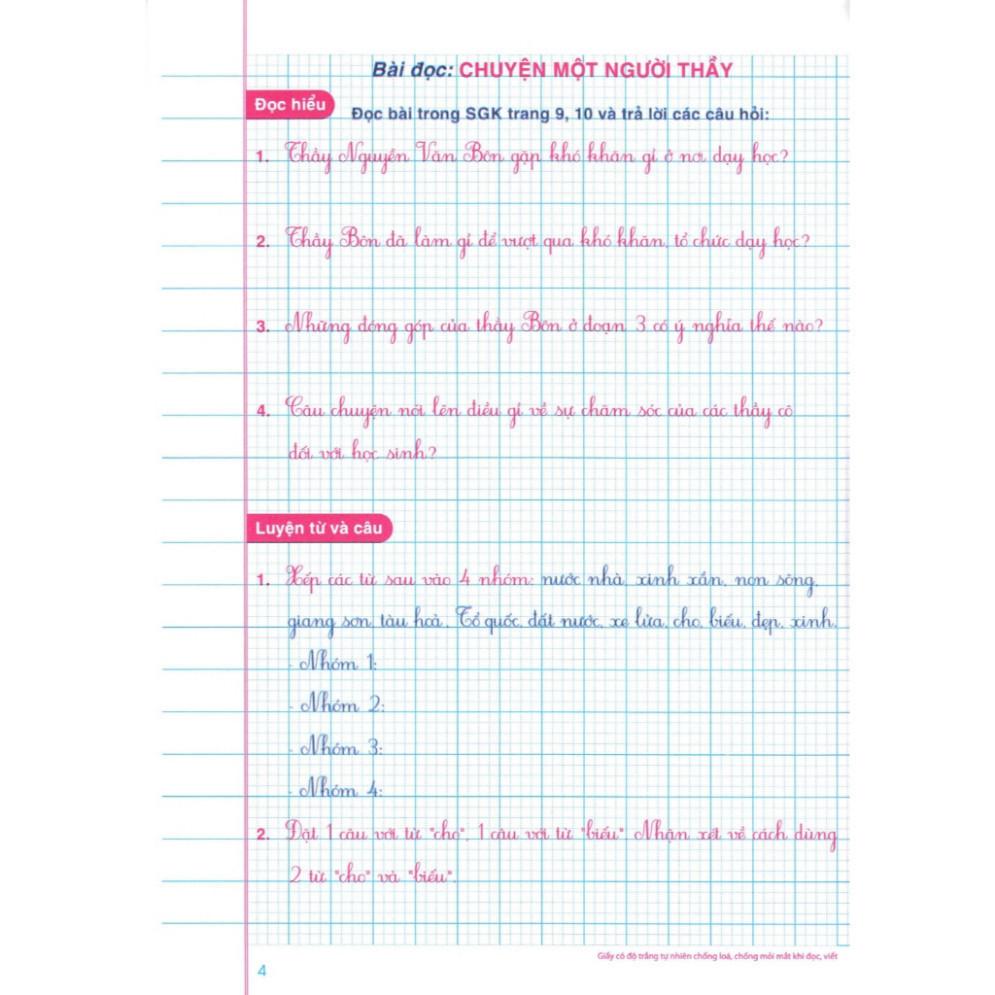 Bài đọc: CHUYỆN MỘT NGƯỜI THẦY
Đọc hiểu
Đọc bài trong SGK trang 9, 10 và trả lời các câu hỏi:
1. Thầy Nguyễn Văn Bôn gặp khó khăn gì ở nơi dạy học?
2. Thầy Bôn đã làm gì để vượt qua khó khăn, tổ chức dạy học?
3. Những đóng góp của thầy Bôn ở đoạn 3 có ý nghĩa thế nào?
4. Câu chuyện nói lên điều gì về sự chăm sóc của các thầy cô
đối với học sinh?
Luyện từ và câu
1. Xếp các từ sau vào 4 nhóm: nước nhà, xinh xắn, non sông,
giang sơn, tàu hoả, Tổ quốc, đất nước, xe lửa, cho, biếu, đẹp, xinh.
- Nhóm 1:
- Nhóm 2:
- Nhóm 3:
- Nhóm 4:
2. Đặt 1 câu với từ "cho", 1 câu với từ "biếu". Nhận xét về cách dùng
2 từ "cho" và "biếu".
Giấy có độ trắng tự nhiên chống loá, chống mỏi mắt khi đọc, viết
4